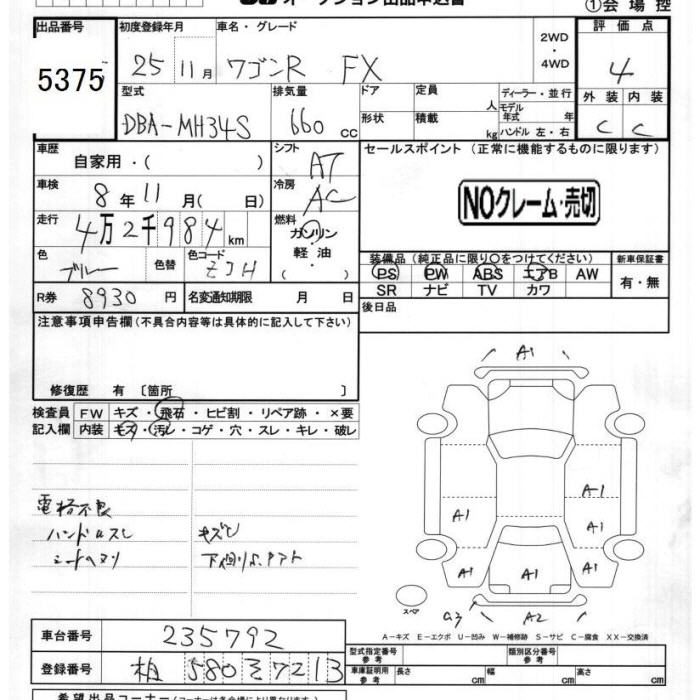 オークション出品申込書
①会場控
出品番号 初度登録年月 車名・グレード 評価点
5375 25 11月 ワゴンR FX 2WD・4WD 4
型式 排気量 ドア 定員 人 ディーラー・並行 外装 内装
DBA-MH34S 660 cc 形状 積載 kg モデル年式 年 ハンドル 左・右 C C
車歴 自家用・( ) シフト AT セールスポイント (正常に機能するものに限ります)
車検 8年 11月( 日) 冷房 AC
NOクレーム・売切
走行 4万2千984km 燃料 ガソリン・軽油・( )
色 ブルー 色替 色コード ZJH
装備品(純正品に限り○をつけてください) 新車保証書
PS PW ABS エアB AW 有・無
SR ナビ TV カワ
R券 8930円 名変通知期限 月 日 後日品
注意事項申告欄(不具合内容等は具体的に記入して下さい)
修復歴 有 〔箇所 〕
検査員 FW キズ・飛石・ヒビ割・リペア跡・×要
記入欄 内装 キズ・汚レ・コゲ・穴・スレ・キレ・破レ
電格不良
ハンドルスレ キズ
シートヘタリ
A1
A1
A1 A1
A1 A1 A1
スペア A2
A-キズ E-エクボ U-凹み W-補修跡 S-サビ C-腐食 XX-交換済
車台番号 235792
登録番号 相 580 7213
型式指定番号 参考 類別区分番号 参考
車庫証明用 参考 長さ cm 幅 cm 高さ cm
希望出品コーナー